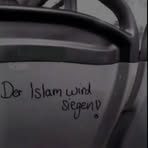 Der Islam wird
siegen!